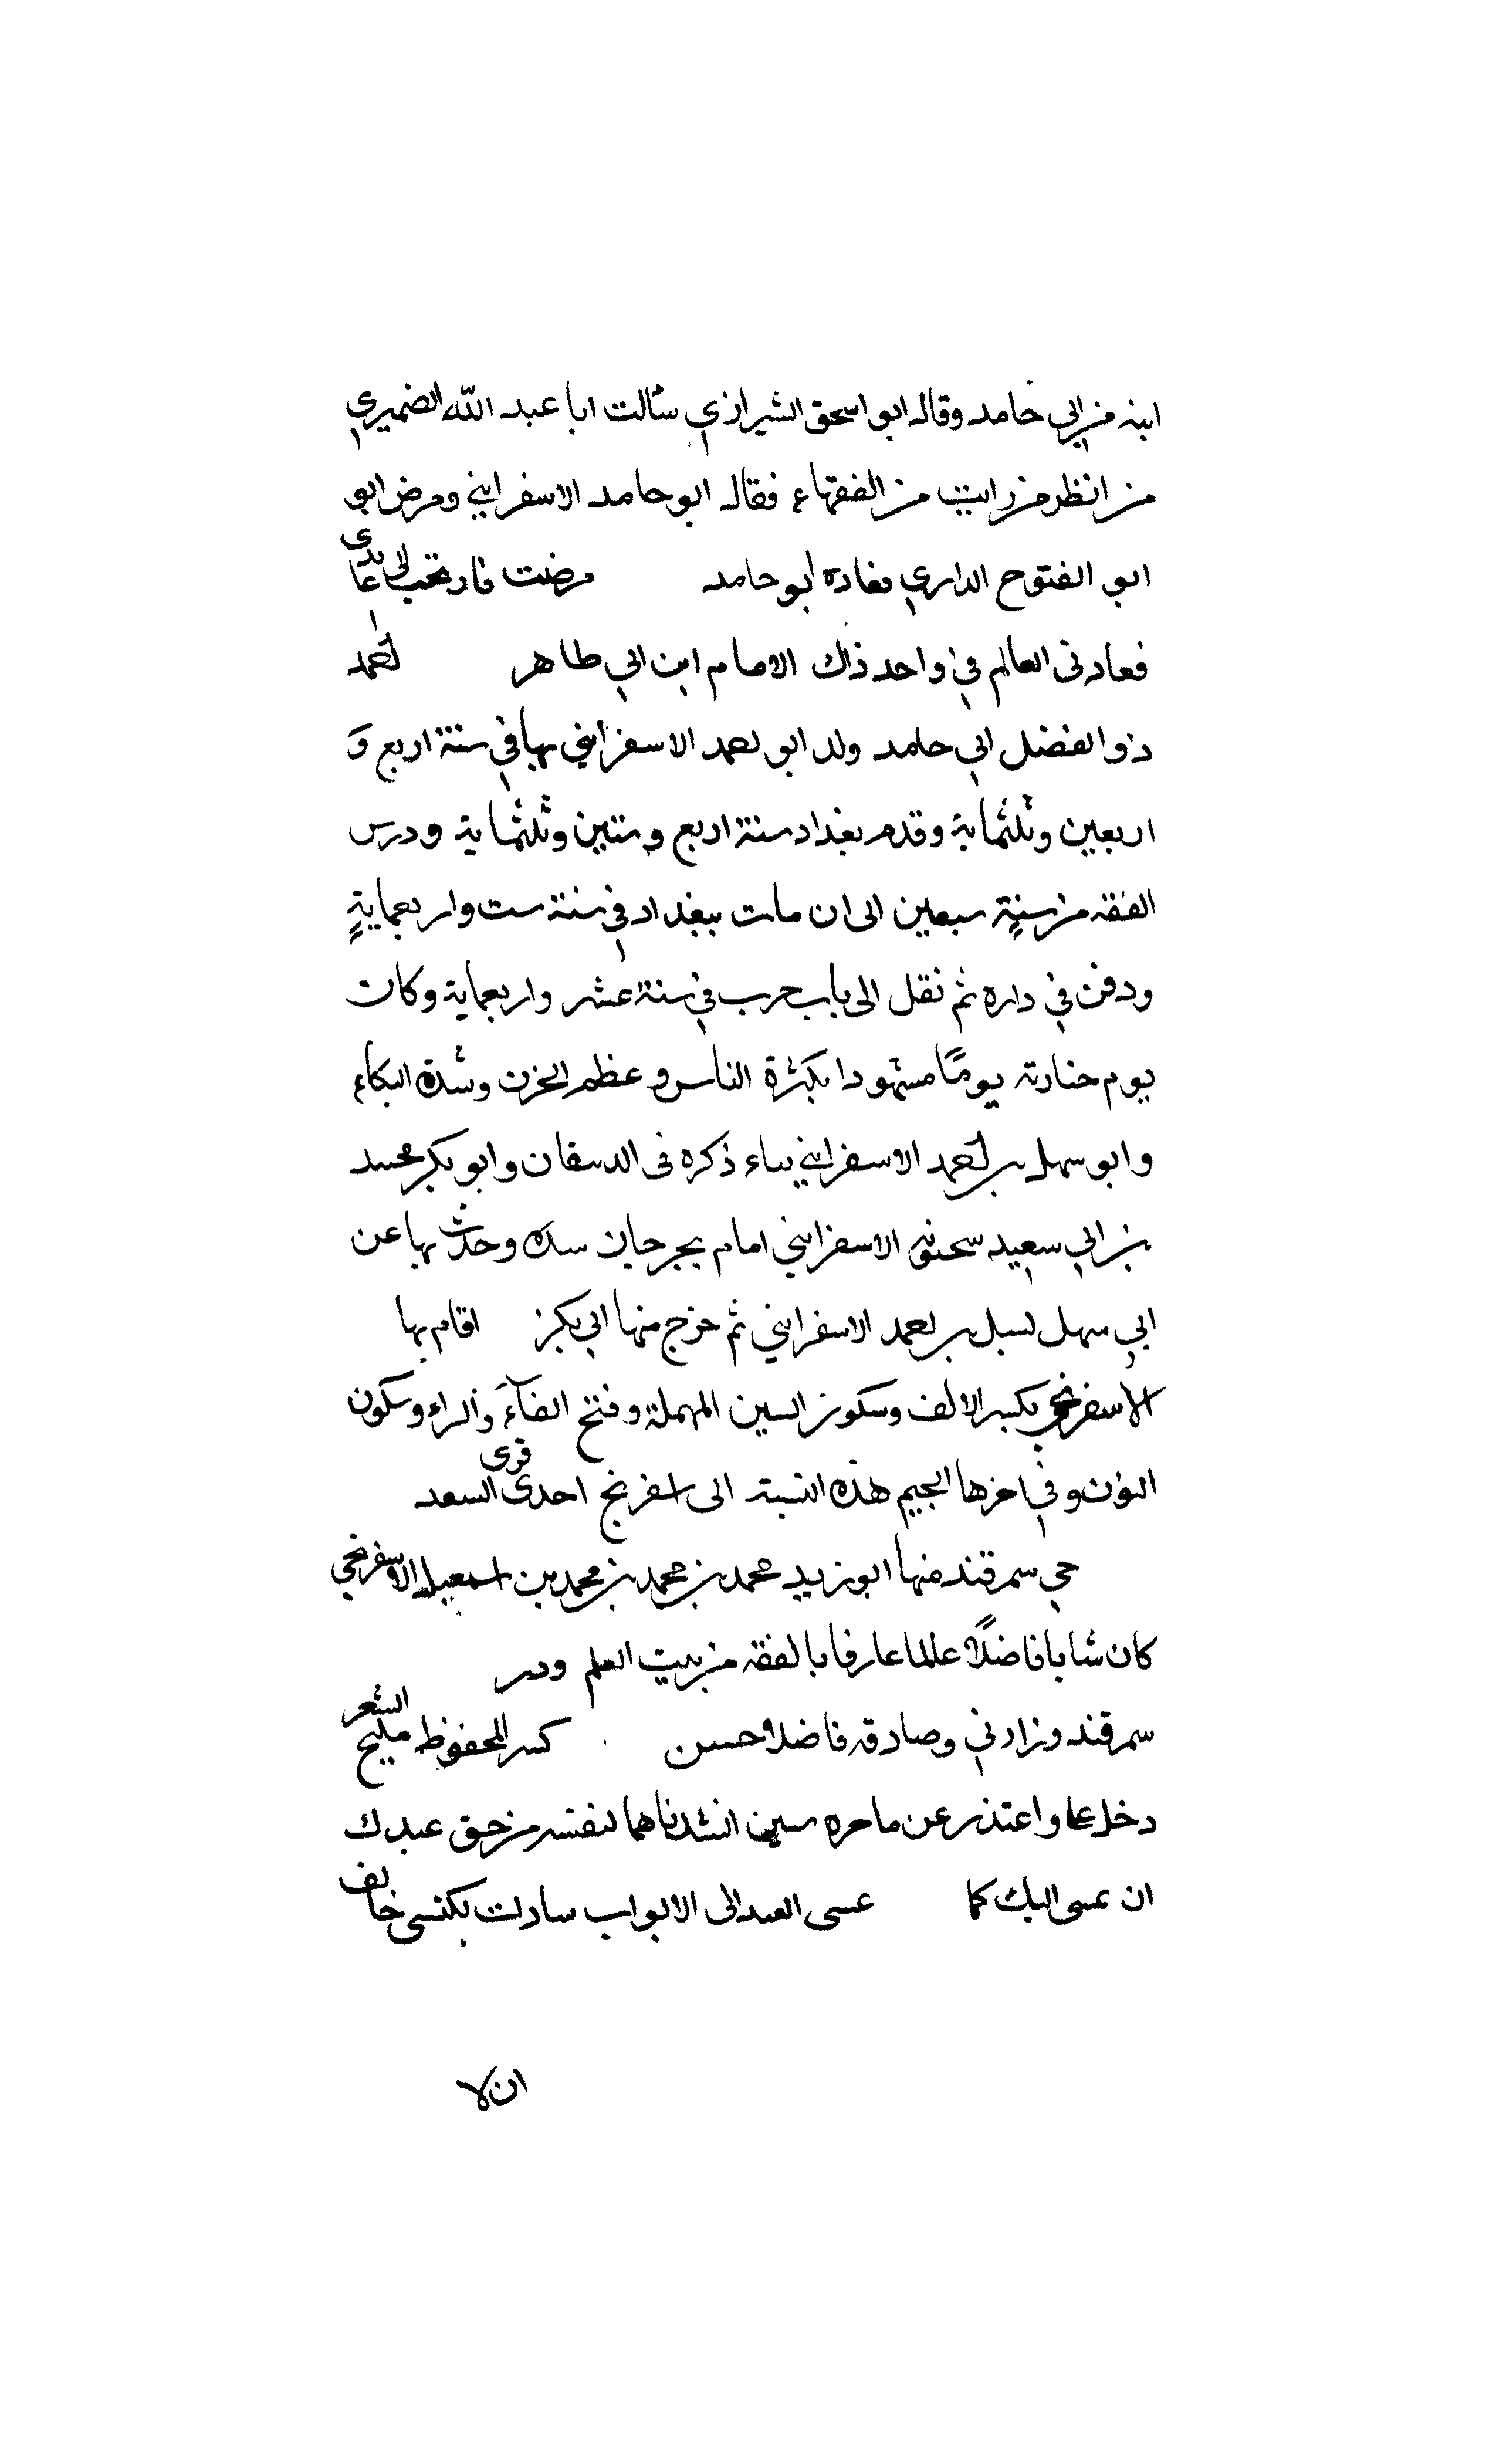 ابنه من ابي حامد وقال ابو اسحق الشيرازي سألت ابا عبد الله الضميري
من انظر من رايت من الفقهاء فقال ابو حامد الاسفرايني ومرض ابو
ابو الفتوح الداري فعاده ابو حامد مرضت فارتحت الى عايدى
فعادنى العالم في واحد ذاك الامام ابن ابي طاهر احمد
ذوا لفضل ابي حامد ولد ابو احمد الاسفرايني بها في سنة اربع و
اربعين وثلثماية وقدم بغداد سنة اربع وستين وثلثماية ودرس
الفقه من سنة سبعين الى ان مات ببغداد في سنة ست واربعماية
ودفن في داره ثم نقل الى باب حرب في سنة عشر واربعماية وكان
يوم جنازته يومًا مشهودا بكثرة الناس وعظم الحزن وشدة البكاء
وابو سهل بن احمد الاسفرايني ذكره فى وابو بكر محمد
بن ابي سعيد الاسفرايني امام بجرجان وحدث بها عن
ابي سهل بن احمد الاسفرايني ثم خرج منها اقام بها
الاسفرنجي بكسر الالف وسكون السين المهملة وفتح الفآء والراء وسكون
النون وفي اخرها الجيم هذه النسبة الى اسفرنج احدى قرى السعد
سمرقند منها ابو زيد محمد بن محمد بن محمد بن اسمعيل الاسفرنجي
كان شابا فاضلًا عالما عارفا بالفقه من بيت العلم
سمرقند وزارني وصادقه فاضلا حسن المحفوظ مليح الشعر
دخل واعتذر عن انشدناهما لنفسه من حق عبدك
ان عسى اليك كما عسى العبد الى الابواب سادات
ان لا